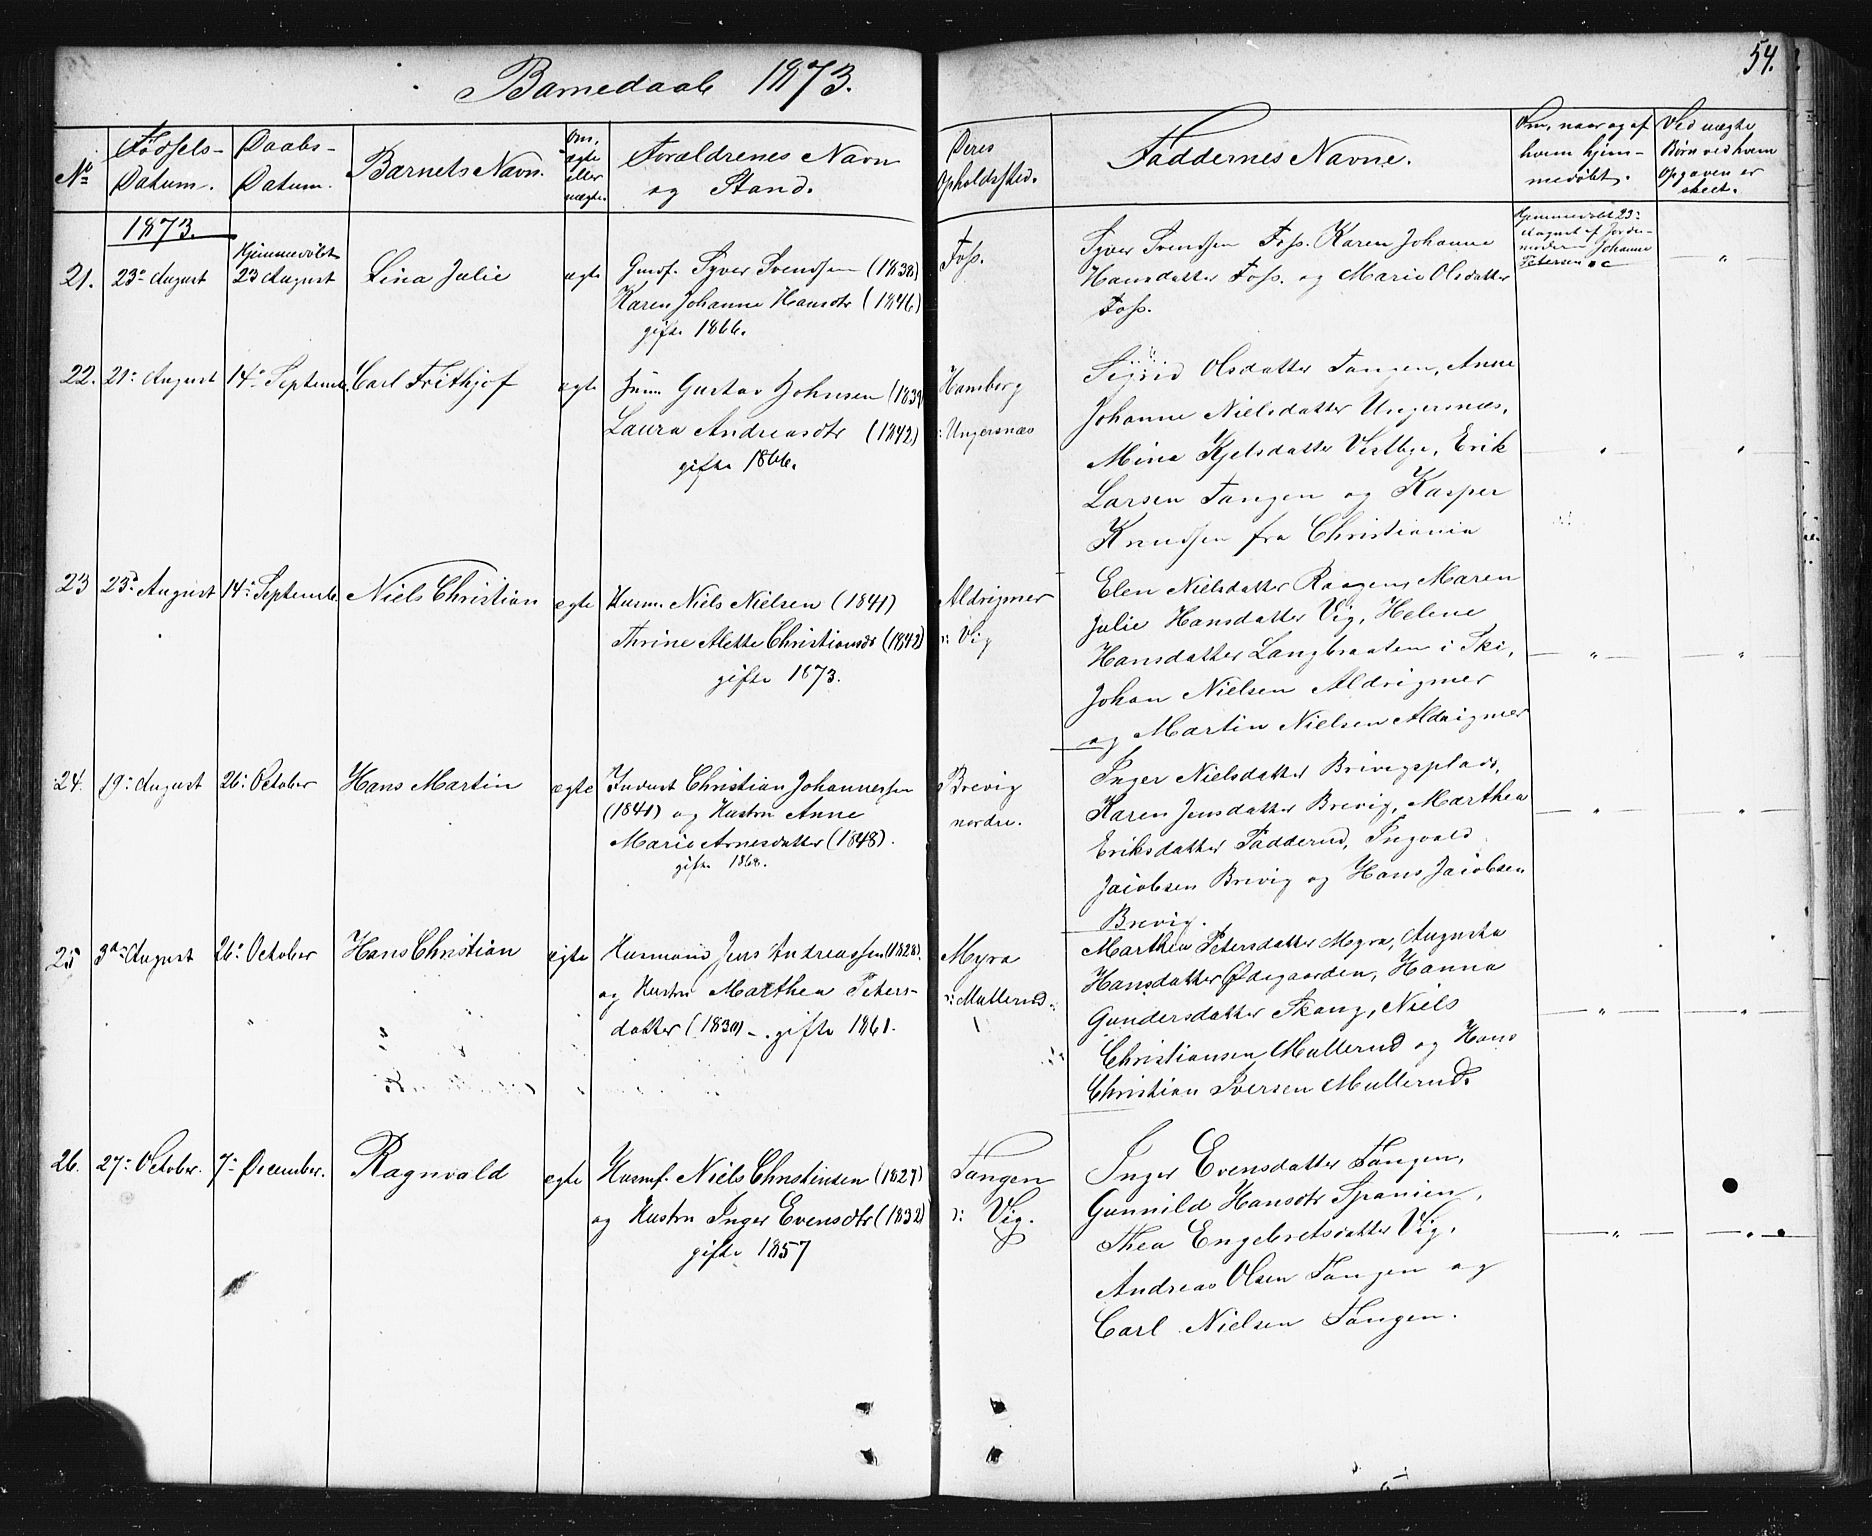 Barnedaab 1873.
54.
No
Fødsels-
Datum.
Daabs-
Datum.
Barnets Navn.
Om
ægte
eller
uægte.
Forældrenes Navn
og Stand.
Deres
Opholdssted.
Faddernes Navne.
Om, naar og af
hvem hjem-
medøbt.
Ved uægte
Børn ved hvem
Opgaven er
skeet.
1873.
21. 23de August
Hjemmedøbt
23 August
Lina Julie
ægte
Gmdf. Syver Svendsen (1838)
Karen Johanne Hansdtr (1846)
gifte 1866.
Foss.
Syver Svendsen Foss. Karen Johanne
Hansdatter Foss. og Marie Olsdatter
Foss.
Hjemmedøbt 23de
August af Jorde-
moderen Johanne
Petersen
"
22. 21. August 14. Septembr. Carl Frithjof
ægte
Gustav Johnsen (1839)
Laura Andreasdtr (1842)
gifte 1866.
Hamberg
v: Ungersnæs
Sigrid Olsdatter Tangen, Anne
Johanne Nielsdatter Ungersnæs,
Mina Kjelsdatter Vestbye, Erik
Larsen Tangen og Kasper
Knudsen fra Christiania
" "
23 23d August 14. Septembr. Niels Christian
ægte
Husm. Niels Nielsen (1841)
Thrine Alette Christiansdr (1842)
gifte 1873.
Aldrigmer
v: Vig
Elen Nielsdatter Maren
Julie Hansdatter Vig, Helene
Hansdatter Langbraaten i Ski,
Johan Nielsen Aldrigmer
og Martin Nielsen Aldrigmer
" "
24. 19. August 26. October Hans Martin
ægte
Inderst Christian Johannessen
(1841) og Hustru Anne
Marie Arnesdatter (1848).
gifte 1868.
Brevig
nordre.
Inger Nielsdatter Brevigsplads,
Karen Jensdatter Brevig, Marthea
Eriksdatter Fadderud, Ingvald
Jacobsen Brevig og Hans Jacobsen
Brevig.
" "
25 3die August 26. October Hans Christian
ægte
Husmand Jens Andreassen (1828).
og Hustru Marthea Peters-
datter (1830) -. gifte 1861.
Myra
v: Mullerud.
Marthea Petersdatter Myra, Augusta
Hansdatter Ødegaarden, Hanna
Gundersdatter Skaug, Niels
Christiansen Mullerud og Hans
Christian Iversen Mullerud.
" "
26. 27. October. 7. December. Ragnvald
ægte
Husmf. Niels Christensen (1827)
og Hustru Inger Evensdtr (1832)
gifte 1857
Tangen
v: Vig.
Inger Evensdatter Tangen,
Gunnild Hansdtr Spanien,
Thea Engebretsdatter Vig,
Andreas Olsen Tangen og
Carl Nielsen Tangen.
" "